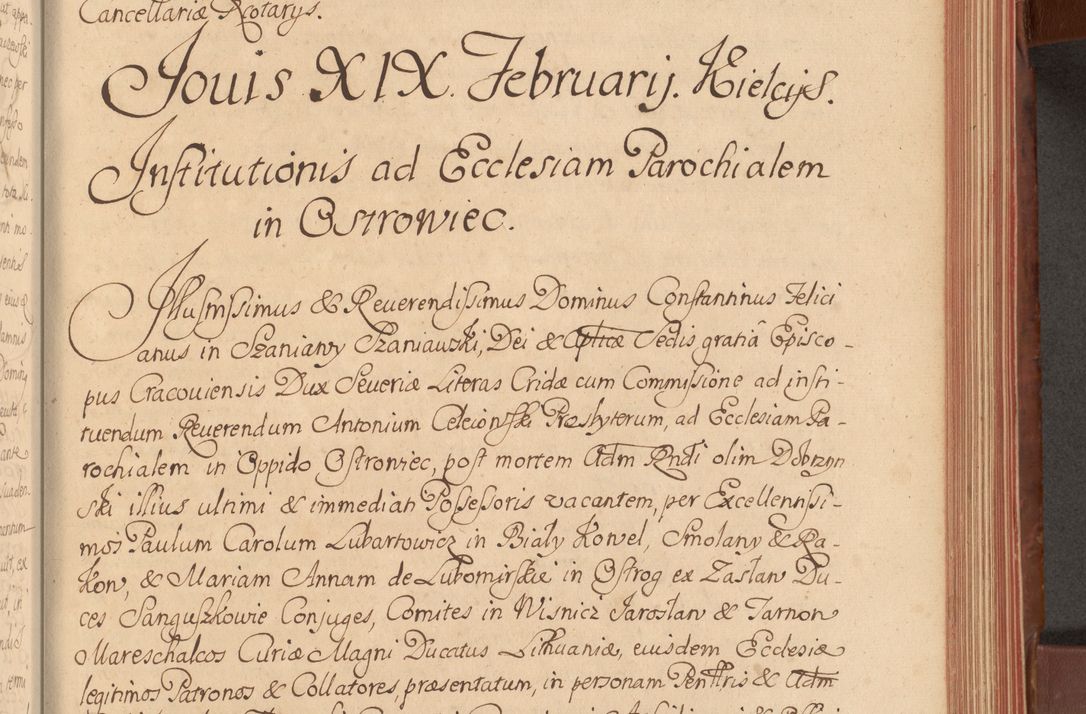 Cancellariæ Notarys.
Jouis XIX. Februarij. Kielcijs.
Institutionis ad Ecclesiam Parochialem
in Ostrowiec.
Illustrissimus & Reuerendissimus Dominus Constantinus Felici
anus in Szaniawy Szaniawski, Dei & Aplicæ Sedis gratiâ Episco-
pus Cracouiensis Dux Seueriæ Literas Cridæ cum Commissione ad insti-
tuendum Reuerendum Antonium Presbyterum, ad Ecclesiam Pa-
rochialem in Oppido Ostrowiec, post mortem Adm Rndi olim Dobrzyn
ski illius ultimi & immediati Possessoris vacantem, per Excellentissi-
mos Paulum Carolum Lubartowicz in Biały Kowel, Smolany & Ra-
kow, & Mariam Annam de Lubomirskie in Ostrog ex Zasław Du-
ces Sanguszkowie Conjuges, Comites in Wisnicz Jarosław & Tarnow
Mareschalcos Curiæ Magni Ducatus Lithuaniæ, eiusdem Ecclesiæ
legitimos Patronos & Collatores præsentatum, in personam & Adm